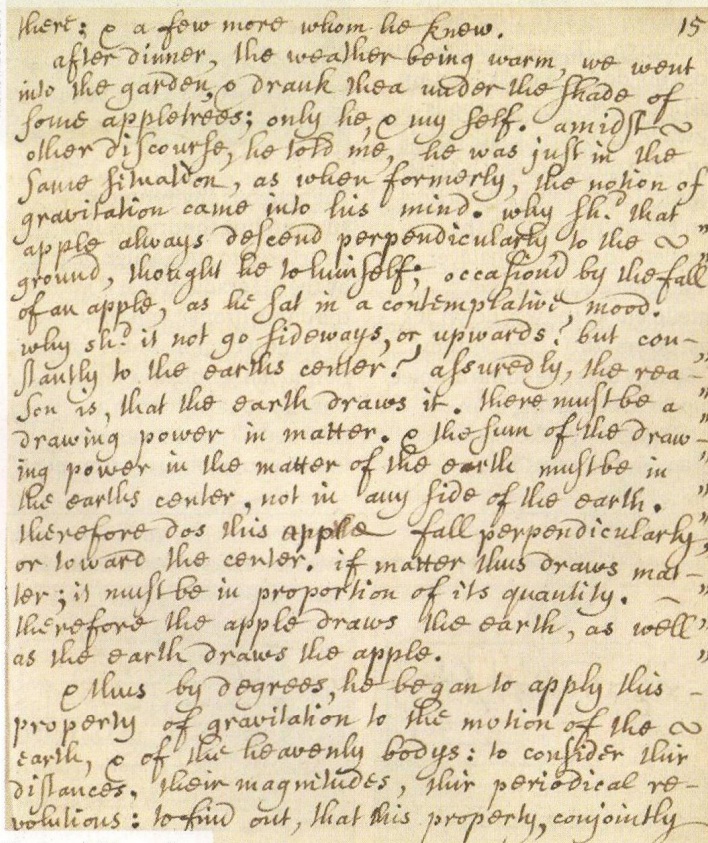 there; & a few more whom he knew. 15
after dinner, the weather being warm, we went
into the garden, & drank thea under the shade of
some appletrees; only he, & my self. amidst
other discourse, he told me, he was just in the
same situation, as when formerly, the notion of
gravitation came into his mind. why sh.d that
apple always descend perpendicularly to the "
ground, thought he to himself; occasion'd by the fall
of an apple, as he sat in a contemplative mood.
why sh.d it not go sideways, or upwards? but con-
stantly to the earths center? assuredly, the rea- "
son is, that the earth draws it. there must be a "
drawing power in matter. & the sum of the draw- "
ing power in the matter of the earth must be in "
the earths center, not in any side of the earth. "
therefore dos this apple fall perpendicularly, "
or toward the center. if matter thus draws mat-
ter; it must be in proportion of its quantity. "
therefore the apple draws the earth, as well "
as the earth draws the apple. "
& thus by degrees, he began to apply this -
property of gravitation to the motion of the
earth, & of the heavenly bodys: to consider thir
distances, their magnitudes, thir periodical re-
volutions: to find out, that this property, conjointly